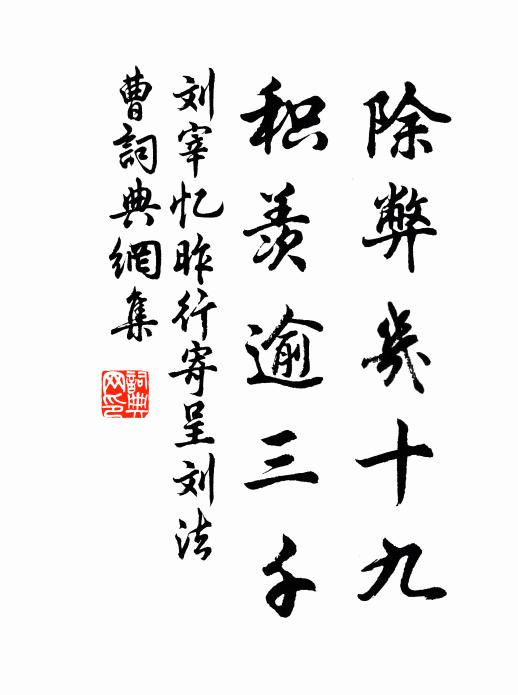 除弊幾十九
积羡逾三千
刘宰忆昨行寄呈刘法
曹詞典網集
詞典网印